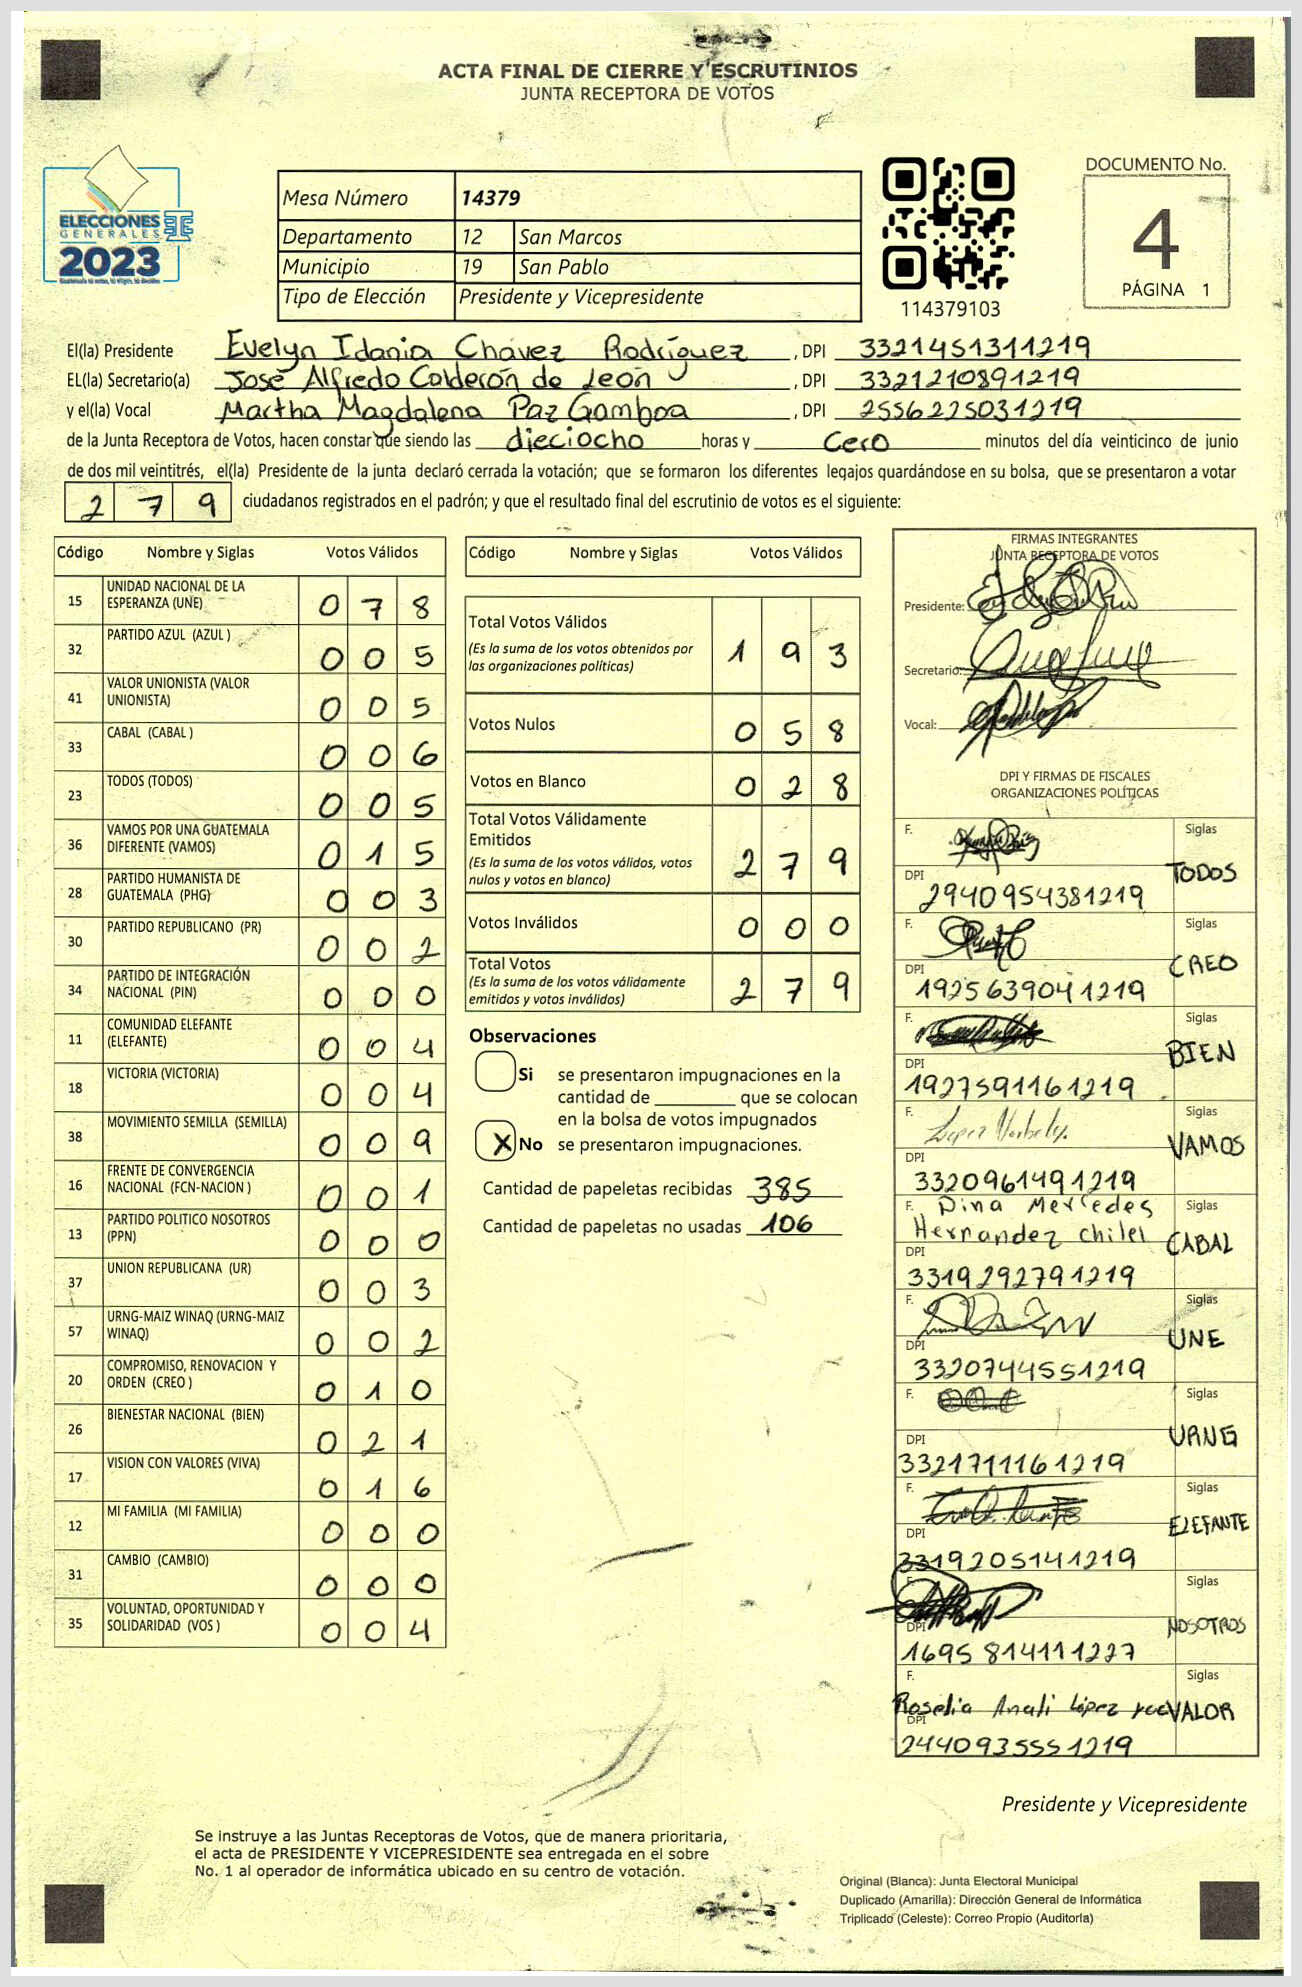 ACTA FINAL DE CIERRE Y ESCRUTINIOS
JUNTA RECEPTORA DE VOTOS
ELECCIONES
GENERALES
2023
Mesa Número 14379
Departamento 12 San Marcos
Municipio 19 San Pablo
Tipo de Elección Presidente y Vicepresidente
114379103
DOCUMENTO No.
4
PÁGINA 1
El(la) Presidente Evelyn Idania Chávez Rodríguez , DPI 3321451311219
EL(la) Secretario(a) José Alfredo Calderón de León , DPI 3321210891219
y el(la) Vocal Martha Magdalena Paz Gamboa , DPI 2556225031219
de la Junta Receptora de Votos, hacen constar que siendo las dieciocho horas y cero minutos del día veinticinco de junio
de dos mil veintitrés, el(la) Presidente de la junta declaró cerrada la votación; que se formaron los diferentes legajos quardándose en su bolsa, que se presentaron a votar
2 7 9 ciudadanos registrados en el padrón; y que el resultado final del escrutinio de votos es el siguiente:
Código Nombre y Siglas Votos Válidos
15 UNIDAD NACIONAL DE LA ESPERANZA (UNE) 0 7 8
32 PARTIDO AZUL (AZUL ) 0 0 5
41 VALOR UNIONISTA (VALOR UNIONISTA) 0 0 5
33 CABAL (CABAL ) 0 0 6
23 TODOS (TODOS) 0 0 5
36 VAMOS POR UNA GUATEMALA DIFERENTE (VAMOS) 0 1 5
28 PARTIDO HUMANISTA DE GUATEMALA (PHG) 0 0 3
30 PARTIDO REPUBLICANO (PR) 0 0 2
34 PARTIDO DE INTEGRACIÓN NACIONAL (PIN) 0 0 0
11 COMUNIDAD ELEFANTE (ELEFANTE) 0 0 4
18 VICTORIA (VICTORIA) 0 0 4
38 MOVIMIENTO SEMILLA (SEMILLA) 0 0 9
16 FRENTE DE CONVERGENCIA NACIONAL (FCN-NACION ) 0 0 1
13 PARTIDO POLITICO NOSOTROS (PPN) 0 0 0
37 UNION REPUBLICANA (UR) 0 0 3
57 URNG-MAIZ WINAQ (URNG-MAIZ WINAQ) 0 0 2
20 COMPROMISO, RENOVACION Y ORDEN (CREO ) 0 1 0
26 BIENESTAR NACIONAL (BIEN) 0 2 1
17 VISION CON VALORES (VIVA) 0 1 6
12 MI FAMILIA (MI FAMILIA) 0 0 0
31 CAMBIO (CAMBIO) 0 0 0
35 VOLUNTAD, OPORTUNIDAD Y SOLIDARIDAD (VOS ) 0 0 4
Código Nombre y Siglas Votos Válidos
Total Votos Válidos 1 9 3
(Es la suma de los votos obtenidos por
las organizaciones políticas)
Votos Nulos 0 5 8
Votos en Blanco 0 2 8
Total Votos Válidamente
Emitidos 2 7 9
(Es la suma de los votos válidos, votos
nulos y votos en blanco)
Votos Inválidos 0 0 0
Total Votos 2 7 9
(Es la suma de los votos válidamente
emitidos y votos inválidos)
Observaciones
Si se presentaron impugnaciones en la
cantidad de ________ que se colocan
en la bolsa de votos impugnados
X No se presentaron impugnaciones.
Cantidad de papeletas recibidas 385
Cantidad de papeletas no usadas 106
FIRMAS INTEGRANTES
JUNTA RECEPTORA DE VOTOS
Presidente:
Secretario:
Vocal:
DPI Y FIRMAS DE FISCALES
ORGANIZACIONES POLÍTICAS
F. Siglas
DPI TODOS
2940954381219
F. Siglas
DPI CREO
1925639041219
F. Siglas
DPI BIEN
1927591161219
F. Siglas
DPI VAMOS
3320961491219
F. Dina Mercedes Siglas
Hernandez Chilel CABAL
DPI
3319292791219
F. Siglas
DPI UNE
3320744551219
F. Siglas
DPI URNG
3321711161219
F. Siglas
DPI ELEFANTE
3319205141219
F. Siglas
DPI NOSOTROS
1695 814111227
F. Siglas
Roselia Anali López VALOR
DPI
2440935551219
Presidente y Vicepresidente
Se instruye a las Juntas Receptoras de Votos, que de manera prioritaria,
el acta de PRESIDENTE Y VICEPRESIDENTE sea entregada en el sobre
No. 1 al operador de informática ubicado en su centro de votación.
Original (Blanca): Junta Electoral Municipal
Duplicado (Amarilla): Dirección General de Informática
Triplicado (Celeste): Correo Propio (Auditoría)